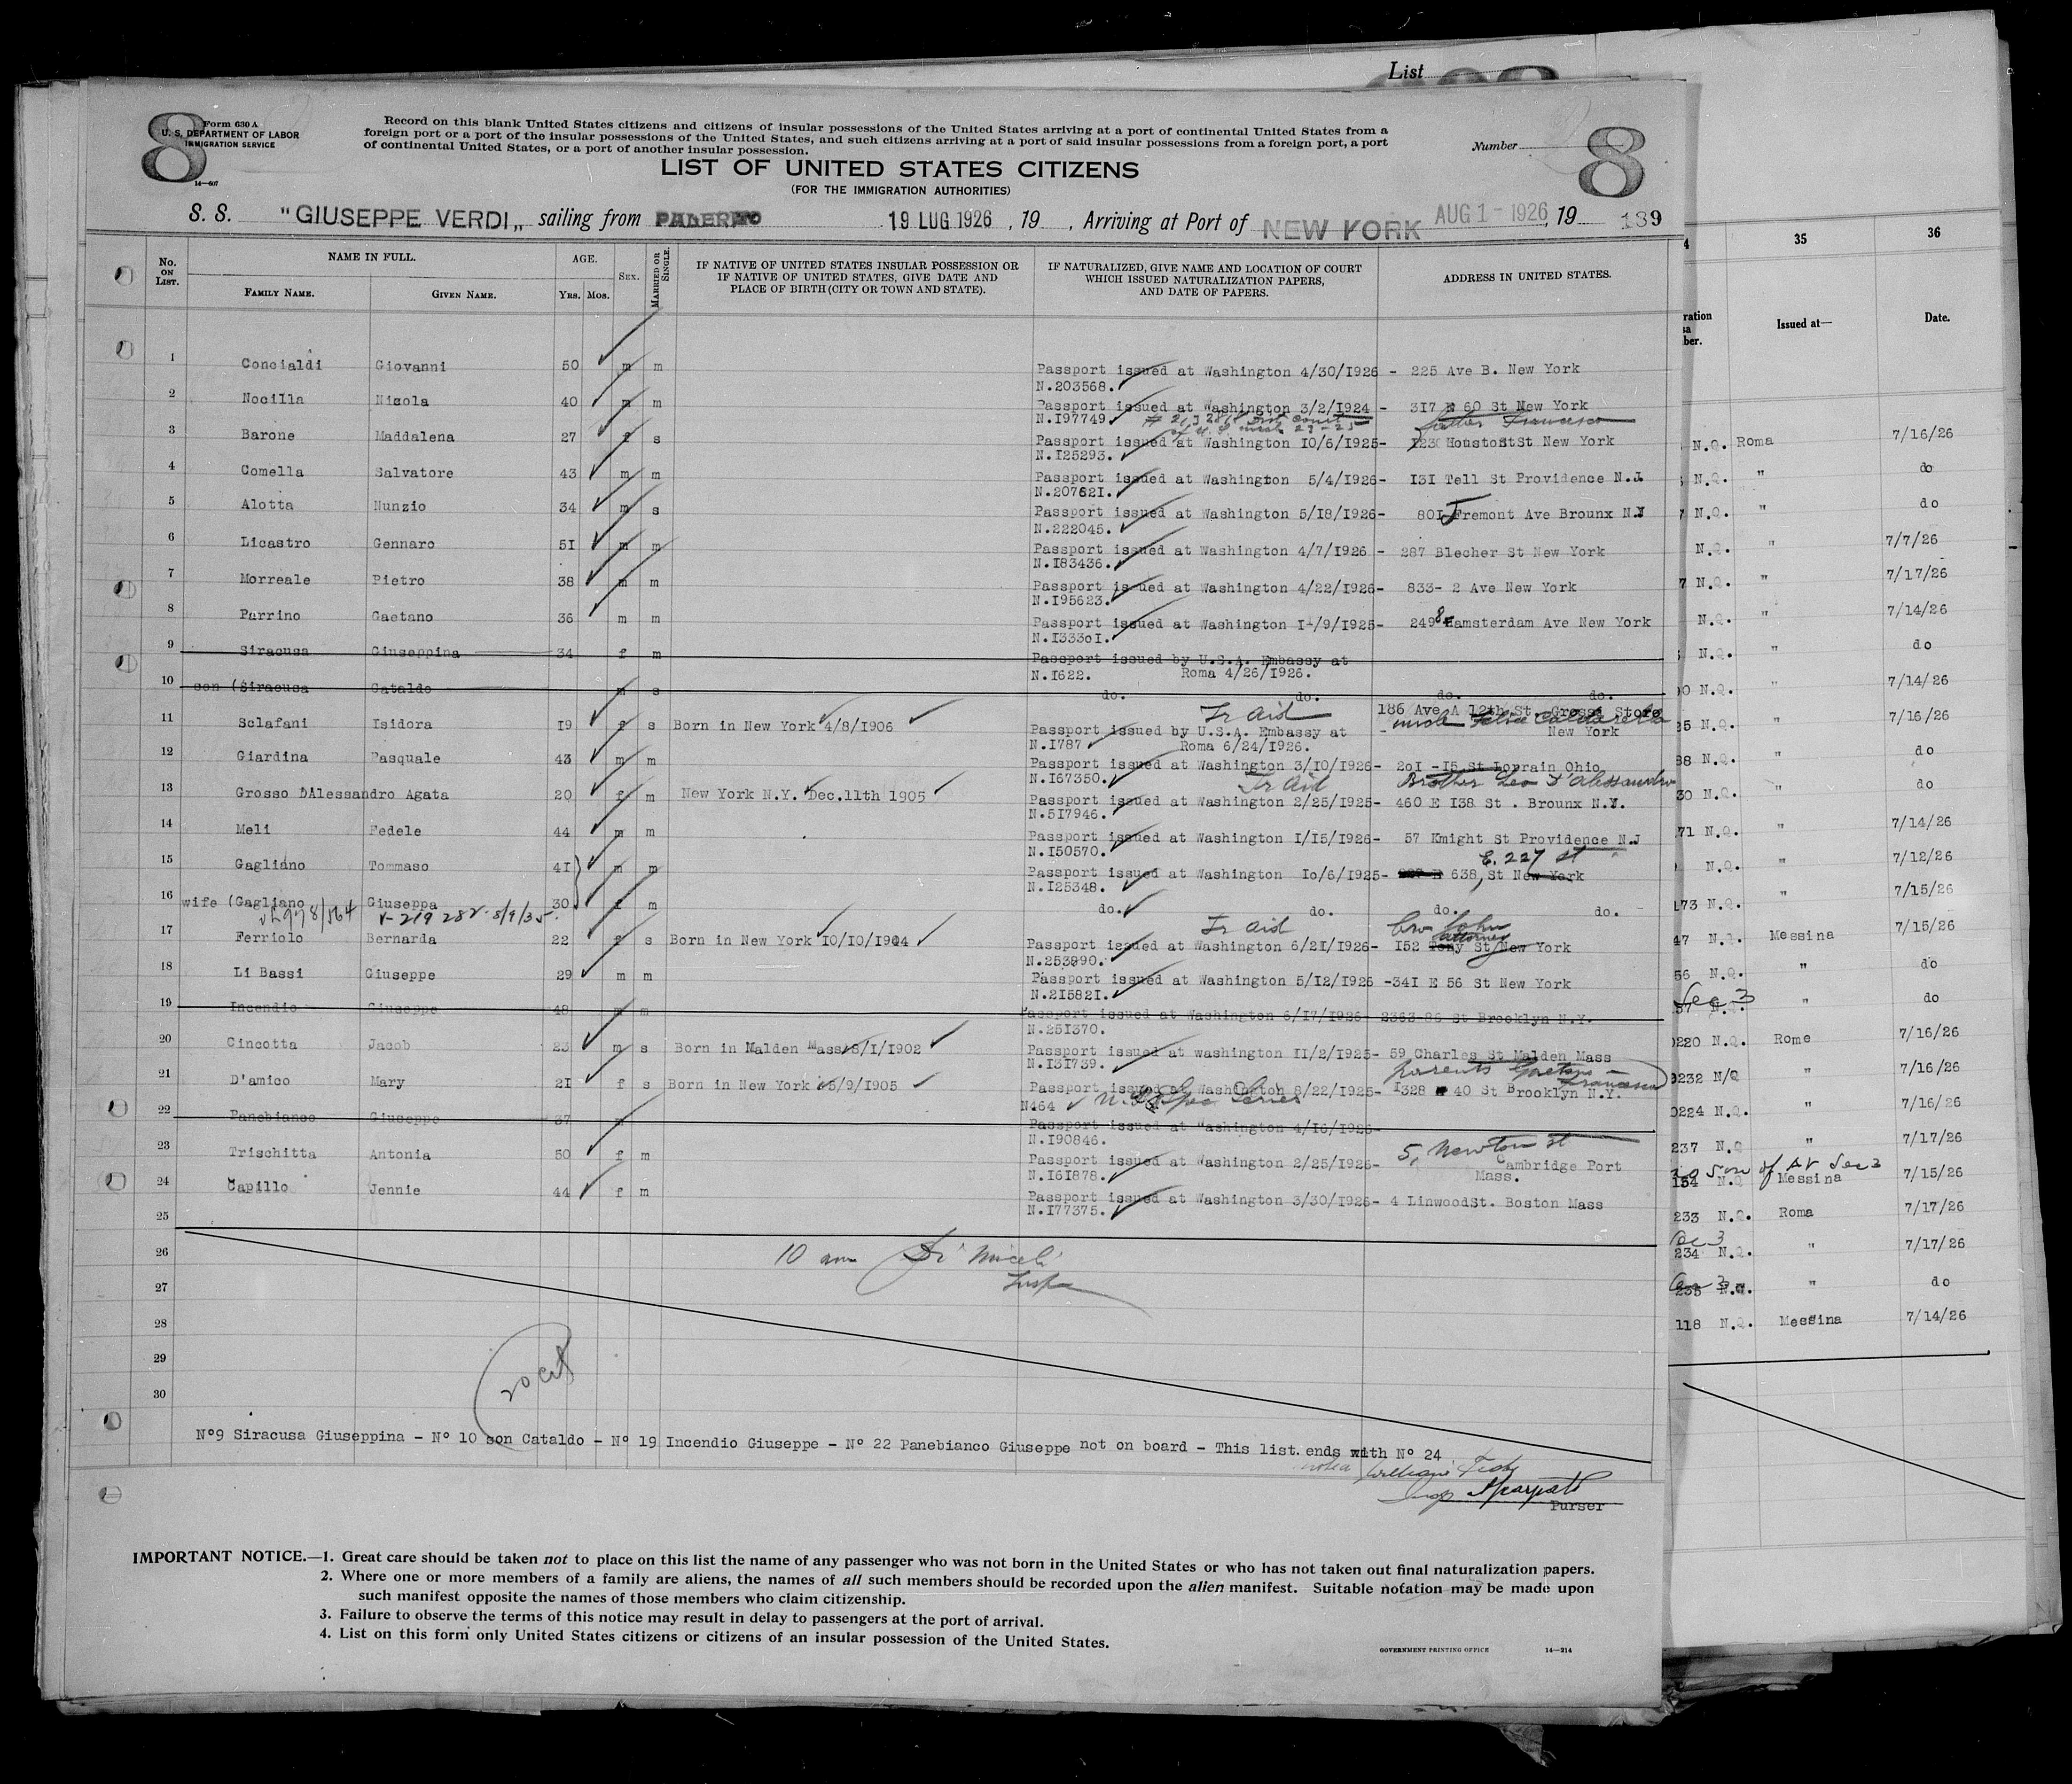 List
8
Form 630 A
U. S. DEPARTMENT OF LABOR
IMMIGRATION SERVICE
14—607
Record on this blank United States citizens and citizens of insular possessions of the United States arriving at a port of continental United States from a
foreign port or a port of the insular possessions of the United States, and such citizens arriving at a port of said insular possessions from a foreign port, a port
of continental United States, or a port of another insular possession.
Number
8
LIST OF UNITED STATES CITIZENS
(FOR THE IMMIGRATION AUTHORITIES)
S. S. "GIUSEPPE VERDI„ sailing from PALERMO 19 LUG 1926, 19 , Arriving at Port of NEW YORK AUG 1 - 1926, 19 189
No. ON LIST. NAME IN FULL. FAMILY NAME. GIVEN NAME. AGE. YRS. MOS. SEX. MARRIED OR SINGLE.
IF NATIVE OF UNITED STATES INSULAR POSSESSION OR
IF NATIVE OF UNITED STATES, GIVE DATE AND
PLACE OF BIRTH (CITY OR TOWN AND STATE).
IF NATURALIZED, GIVE NAME AND LOCATION OF COURT
WHICH ISSUED NATURALIZATION PAPERS,
AND DATE OF PAPERS.
ADDRESS IN UNITED STATES.
1 Concialdi Giovanni 50 m m Passport issued at Washington 4/30/1926 - 225 Ave B. New York
N.203568.
2 Nocilla Nizola 40 m m Passport issued at Washington 3/2/1924 - 317 E 60 St New York
N.197749
father Francesco
3 Barone Maddalena 27 f s Passport issued at Washington 10/6/1925- 1230 HoustoStSt New York
N.125293.
4 Comella Salvatore 43 m m Passport issued at Washington 5/4/1926- 131 Tell St Providence N.J.
N.207621.
5 Alotta Nunzio 34 m s Passport issued at Washington 5/18/1926- 801 Tremont Ave Brounx N.Y
N.222045.
6 Licastro Gennaro 51 m m Passport issued at Washington 4/7/1926 - 287 Blecher St New York
N.183436.
7 Morreale Pietro 38 m m Passport issued at Washington 4/22/1926- 833- 2 Ave New York
N.195623.
8 Parrino Gaetano 36 m m Passport issued at Washington 1-/9/1925- 2498 Hamsterdam Ave New York
N.13330I.
9 Siracusa Giuseppina 34 f m Passport issued by U.S.A. Embassy at
N.1622. Roma 4/26/1926.
10 son (Siracusa Cataldo m s do. do. do. do.
11 Sclafani Isidora 19 f s Born in New York 4/8/1906 Tr aid 186 Ave A 12th St. Grosse Store
uncle Felice
Passport issued by U.S.A. Embassy at - New York
N.1787 Roma 6/24/1926.
12 Giardina Pasquale 43 m m Passport issued at Washington 3/10/1926- 201 -15 St Lorrain Ohio
N.167350.
Tr aid Brother Leo D'Alessandro
13 Grosso DAlessandro Agata 20 f m New York N.Y. Dec.11th 1905 Passport issued at Washington 2/25/1925- 460 E 138 St . Brounx N.Y.
N.517946.
14 Meli Fedele 44 m m Passport issued at Washington 1/15/1926- 57 Kmight St Providence N.J
N.150570.
E. 227 St
15 Gagliano Tommaso 41 m m Passport issued at Washington 10/6/1925- 638, St New York
N.125348.
16 wife (Gagliano Giuseppa 30 f m do. do. do. do.
V-219 282-8/9/35.
17 Ferriolo Bernarda 22 f s Born in New York 10/10/1904 Tr aid Bro John
attorney
Passport issued at Washington 6/21/1926- 152 Tony St New York
N.253890.
18 Li Bassi Giuseppe 29 m m Passport issued at Washington 5/12/1926 -341 E 56 St New York
N.215821.
19 Incendio Giuseppe 48 m m Passport issued at Washington 6/17/1926- 2363 86 St Brooklyn N.Y.
N.251370.
20 Cincotta Jacob 23 m s Born in Malden Mass 8/1/1902 Passport issued at washington 11/2/1925- 59 Charles St Malden Mass
N.131739.
parents Gaetano - Francesca
21 D'amico Mary 21 f s Born in New York 5/9/1905 Passport issued at Washington 8/22/1925- 1328 40 St Brooklyn N.Y.
N464
22 Panebianco Giuseppe 37 Passport issued at Washington 4/16/1926-
N.190846.
5, Newton St
23 Trischitta Antonia 50 f m Passport issued at Washington 2/25/1926- Cambridge Port
N.161878. Mass.
24 Capillo Jennie 44 f m Passport issued at Washington 3/30/1926- 4 LinwoodSt. Boston Mass
N.177375.
25
26
10 am Di Miceli
Insp
27
28
29
20 cit
30
Nº9 Siracusa Giuseppina - Nº 10 son Cataldo - Nº 19 Incendio Giuseppe - Nº 22 Panebianco Giuseppe not on board - This list. ends with Nº 24
Purser
IMPORTANT NOTICE.—1. Great care should be taken not to place on this list the name of any passenger who was not born in the United States or who has not taken out final naturalization papers.
2. Where one or more members of a family are aliens, the names of all such members should be recorded upon the alien manifest. Suitable notation may be made upon
such manifest opposite the names of those members who claim citizenship.
3. Failure to observe the terms of this notice may result in delay to passengers at the port of arrival.
4. List on this form only United States citizens or citizens of an insular possession of the United States.
GOVERNMENT PRINTING OFFICE 14—214
4 35 36
ration
sa
ber.
Issued at— Date.
N.Q. Roma 7/16/26
N.Q. " do
7 N.Q. " do
N.Q. " 7/7/26
7 N.Q. " 7/17/26
N.Q. " 7/14/26
N.Q. " do
0 N.Q. " 7/14/26
25 N.Q. " 7/16/26
38 N.Q. " do
30 N.Q. " do
71 N.Q. " 7/14/26
N.Q. " 7/12/26
173 N.Q. " 7/15/26
47 N.Q. Messina 7/15/26
56 N.Q. " do
Sec 3
57 N.Q. " do
0220 N.Q. Rome 7/16/26
0232 N/Q " 7/16/26
0224 N.Q. " 7/16/26
237 N.Q " 7/17/26
154 N.Q Messina 7/15/26
233 N.Q. Roma 7/17/26
234 N.Q. " 7/17/26
235 N.Q. " do
118 N.Q. Messina 7/14/26